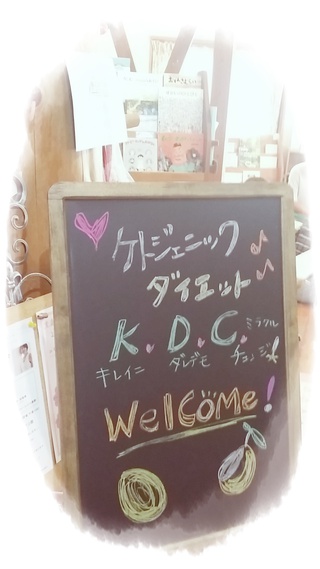 ケトジェニック
ダイエット
K. D. C.
ミラクル
キレイニ ダレデモ チェンジ
Welcome!